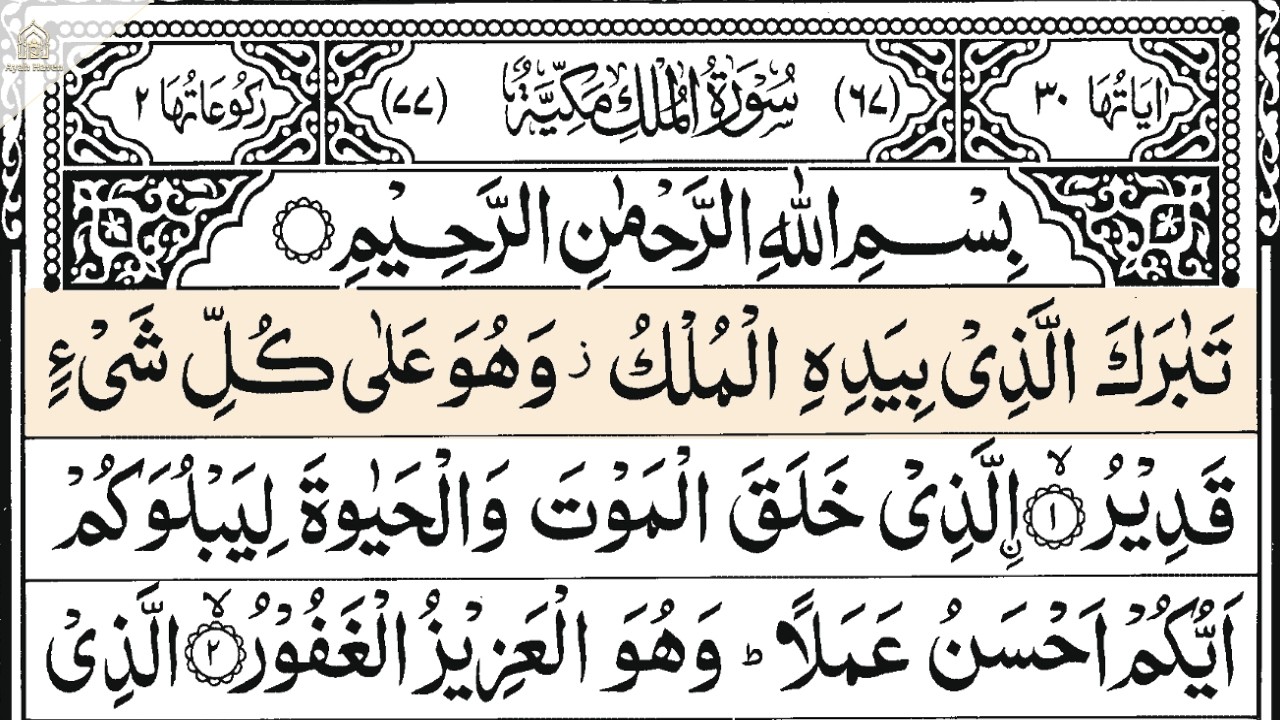 Ayah Haven
اٰيَاتُهَا ٣٠ (٦٧) سُوْرَةُ الْمُلْكِ مَكِّيَّةٌ (٧٧) رُكُوْعَاتُهَا ٢
بِسْمِ اللّٰهِ الرَّحْمٰنِ الرَّحِيْمِ
تَبٰرَكَ الَّذِىْ بِيَدِهِ الْمُلْكُ ز وَهُوَ عَلٰى كُلِّ شَىْءٍ
قَدِيْرُ ۙ‏﴿١﴾ اۨلَّذِىْ خَلَقَ الْمَوْتَ وَالْحَيٰوةَ لِيَبْلُوَكُمْ
اَيُّكُمْ اَحْسَنُ عَمَلًا ؕ وَهُوَ الْعَزِيْزُ الْغَفُوْرُ ۙ‏﴿٢﴾ الَّذِىْ